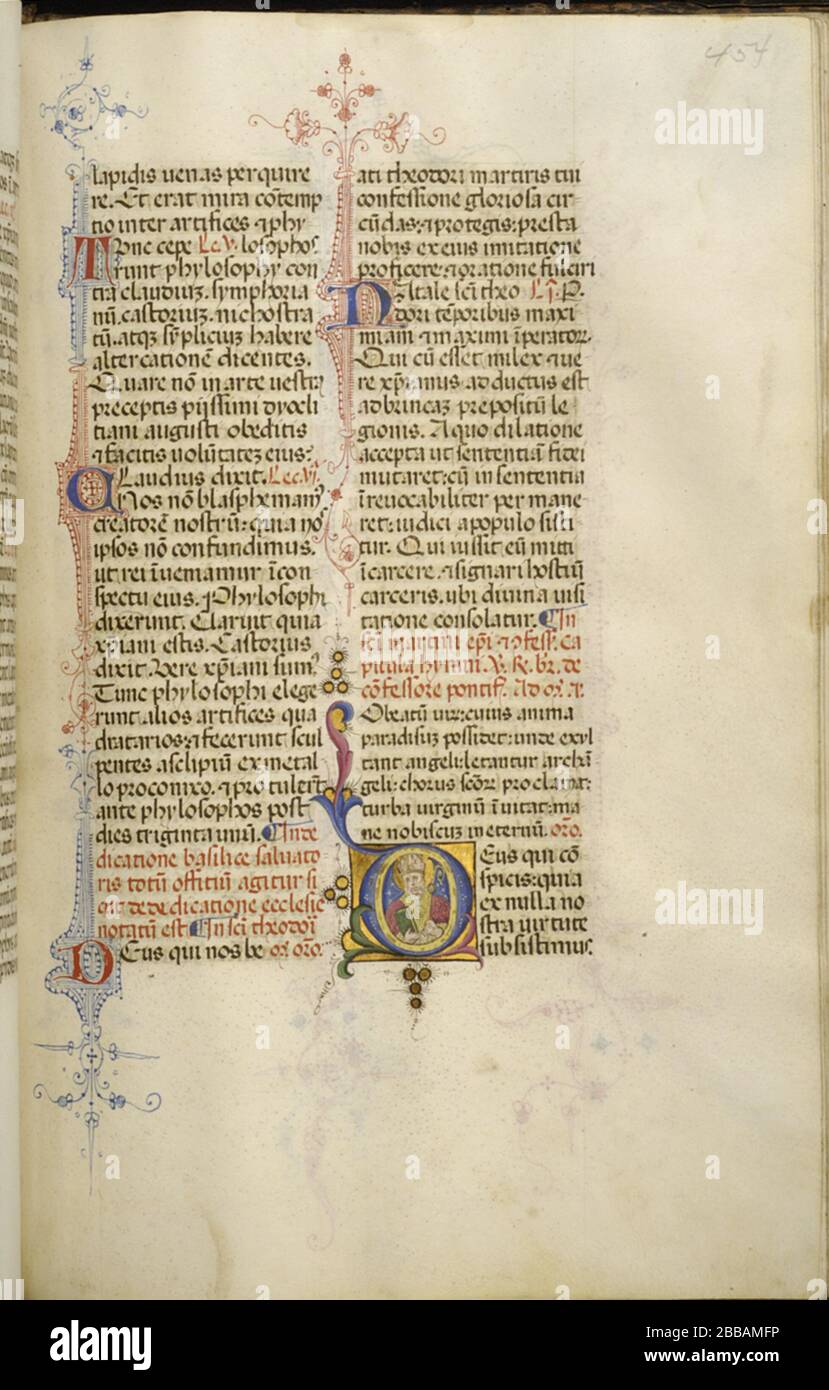 454
lapidis uenas perquire
re. Et erat mira cõtemp
tio inter artifices ⁊ phy
Tunc cepe Lc.V. losophos
runt phylosophy con
tra claudiuz. symphoria
nũ. castoriuz. nichostra
tũ. atqz sỹpliciuz habere
altercationẽ dicentes.
Quare nõ in arte uestrę
preceptis pijssimi dyocli
tiani augusti obeditis
⁊ facitis uolũtatez eius?
Claudius dixit. Lc.Vi.
Nos nõ blasphemamꝰ
creatorẽ nostrũ: quia nos
ipsos nõ confundimus.
ut rei ĩueniamur ĩ con
spectu eius. Phylosophi
dixerunt. Claruit quia
xp̃iani estis. Castorius
dixit. Vere xp̃iani sumꝰ
Tunc phylosophi elege
runt alios artifices qua
dratarios: ⁊ fecerunt scul
pentes asclipiũ ex metal
lo proconixo. ⁊ protulerũt
ante phylosophos post
dies triginta unũ. ¶ In de
dicatione basilice saluato
ris totũ offitiũ agitur si
cut de dedicatione ecclesie
notatũ est ¶ In sc̃i theodoĩ
Deus qui nos be or. or̃o.
ati theodori martiris tui
confessione gloriosa cir
cũdas: ⁊ protegis: presta
nobis ex eius imitatione
proficere: ⁊ oratione fulciri
Natale sc̃i theo Lj. P.
dori tẽporibus maxi
miani ⁊ maximi ĩperatoꝝ.
Qui cũ esset milex ⁊ ue
re xp̃ianus adductus est
ad brincaz prepositũ le
gionis. A quo dilatione
accepta ut sententiã fidei
mutaret: cũ in sententia
ĩreuocabiliter permane
ret: iudici a populo sisti
tur. Qui iussit eũ mitti
ĩ carcere. ⁊ signari hostiũ
carceris. ubi diuina uisi
tatione consolatur. ¶ In
sc̃i martini ep̃i ⁊ ↄfess. ca
pitula hymni. V. R. br. de
cõfessore pontif. Ad or. a.
O beatũ uiꝝ: cuius anima
paradisuz possidet: unde exul
tant angeli: letantur archã
geli: chorus scõꝝ proclamat:
turba uirginũ ĩuitat: ma
ne nobiscuz in eternũ. or̃o.
Deus qui cõ
spicis: quia
ex nulla no
stra uirtute
subsistimus.
alamy
Image ID: 2BBAMFP
www.alamy.com